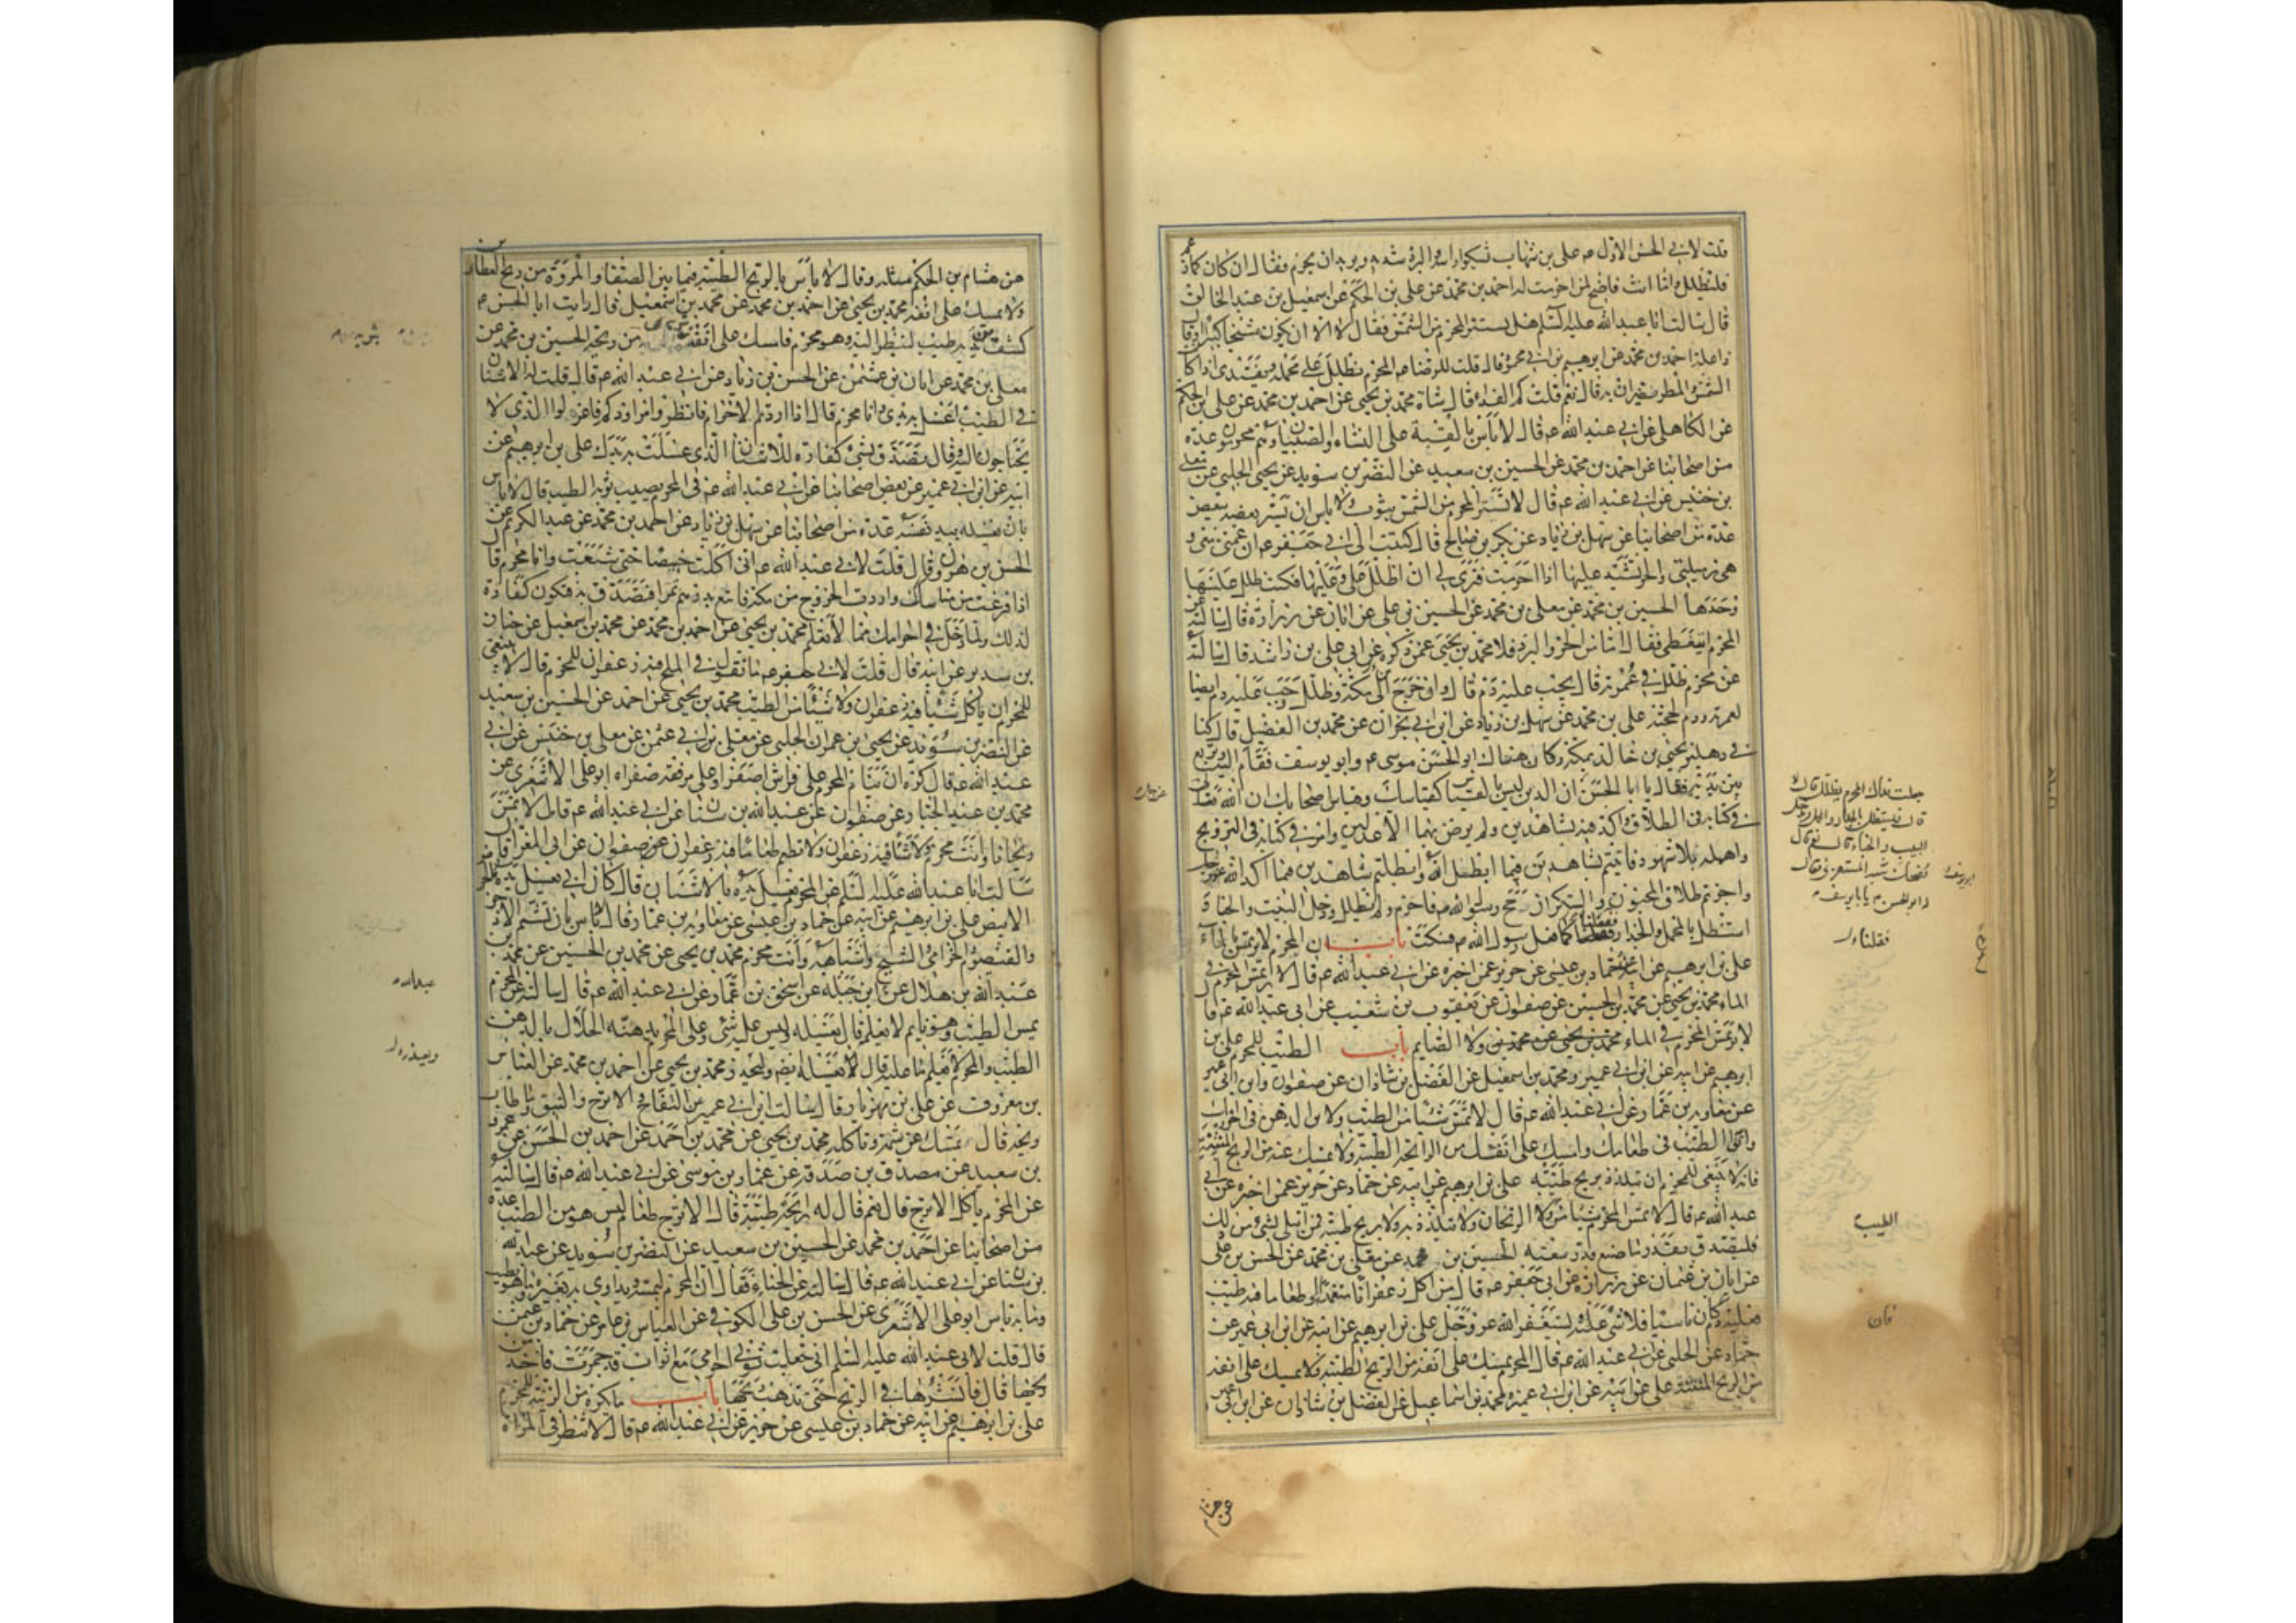 قلت لابي الحسن الاول عم علي بن شهاب يشكوا راسه والبرد شديد ويريد ان يحرم فقال ان كان كما زعم
فليظلل واما انت فاضح لمن احرمت له احمد بن محمد عن علي بن الحكم عن اسمعيل بن عبد الخالق
قال سالت ابا عبد الله عليه السلم هل يستتر المحرم من الشمس فقال لا الا ان يكون شيخا كبيرا او قال
ذا علة احمد بن محمد عن ابرهيم بن ابي محمود قال قلت للرضا عم المحرم يظلل على محمله ويفتدى اذا كا
الشمس والمطر يضران به قال نعم قلت كم الفداء قال شاة محمد بن يحيى عن احمد بن محمد عن علي بن الحكم
عن الكاهلي عن ابي عبد الله عم قال لا باس بالقبة على النساء والصبيان وهم محرمون عدة
من اصحابنا عن احمد بن محمد عن الحسين بن سعيد عن النضر بن سويد عن يحيى الحلبي عن معلى
بن خنيس عن ابي عبد الله عم قال لا تستتر المحرم من الشمس بثوب ولا باس ان يستر بعضه ببعض
عدة من اصحابنا عن سهل بن زياد عن بكر بن صالح قال كتبت الى ابي جعفر عم ان عمتي معي و
هي زميلتي والحر تشتد عليها اذا احرمت فترى لي ان اظلل على وعليها فكتب ظلل عليها
وحدها الحسين بن محمد عن معلى بن محمد عن الحسين بن علي عن ابان عن زرارة قال سالته عن
المحرم ايتغطى فقال اما من الحر والبرد فلا محمد بن يحيى عمن ذكره عن ابي علي بن راشد قال سالته
عن محرم ظلل في عمرته قال يجب عليه دم قال وان خرج الى مكة وظلل وجب عليه دم ايضا
لعمرته ودم لحجته علي بن محمد عن سهل بن زياد عن ابن ابي نجران عن محمد بن الفضيل قال كنا
في دهليز يحيى بن خالد بمكة وكان هناك ابو الحسن موسى عم وابو يوسف فقام اليه وتربع
بين يديه فقال يا ابا الحسن ان الدين ليس بالقياس كقياسك وقياس اصحابك ان الله تعالى
في كتابه في الطلاق واكد فيه بشاهدين ولم يرض بهما الا عدلين وامر في كتابه في التزويج
واهمله بلا شهود فاتيتم بشاهدين فيما ابطل الله وابطلتم شاهدين فيما اكد الله عز وجل
واجزتم طلاق المجنون والسكران حج رسول الله ص فاحرم ولم يظلل ودخل البيت والخباء
استظل بالمحمل والجدار فقلنا كما فعل رسول الله ص فسكت باب ان المحرم لا يرتمس في الماء
علي بن ابرهيم عن ابيه عن حماد بن عيسى عن حريز عمن اخبره عن ابي عبد الله عم قال لا يرتمس المحرم في
الماء محمد بن يحيى عن محمد بن الحسين عن صفوان عن يعقوب بن شعيب عن ابي عبد الله عم قال
لا يرتمس المحرم في الماء ولا الصايم باب الطيب للمحرم علي بن
ابرهيم عن ابيه عن ابن ابي عمير ومحمد بن اسمعيل عن الفضل بن شاذان عن صفوان وابن ابي عمير
عن معاوية بن عمار عن ابي عبد الله عم قال لا تمس شيئا من الطيب ولا من الدهن في احرامك
واتق الطيب في طعامك وامسك على انفك من الرايحة الطيبة ولا تمسك عنه من الريح المنتنة
فانه لا ينبغي للمحرم ان يتلذذ بريح طيبة علي بن ابرهيم عن ابيه عن حماد عن حريز عمن اخبره عن ابي
عبد الله عم قال لا تمس المحرم شيئا من ولا الريحان ولا يتلذذ به ولا بريح طيبة فمن ابتلى بشيء من ذلك
فليتصدق بقدر ما صنع قدر سعته الحسين بن محمد عن معلى بن محمد عن الحسن بن علي
عن ابان بن عثمان عن زرارة عن ابي جعفر عم قال من اكل زعفرانا متعمدا او طعاما فيه طيب
فعليه دم كان ناسيا فلا شيء عليه ليستغفر الله عز وجل علي بن ابرهيم عن ابيه عن ابن ابي عمير عن
حماد عن الحلبي عن ابي عبد الله عم قال المحرم يمسك على انفه من الريح الطيبة ولا يمسك على انفه
من الريح المنتنة علي عن ابيه عن ابن ابي عمير ومحمد بن اسماعيل عن الفضل بن شاذان عن ابن ابي عمير
جعلت فداك المحرم يظلل قال لا
قال فيستظل بالجدار والمحل ويدخل
البيت والخباء قال نعم قال
فضحك شبه المستهزئ فقال
له ابو الحسن يا ابا يوسف
فقلنا
الطيب
فان
عن هشام
عن هشام بن الحكم مثله وقال لا باس بالريح الطيبة فيما بين الصفا والمروة من ريح العطارين
ولا يمسك على انفه محمد بن يحيى عن احمد بن محمد عن محمد بن اسمعيل قال رايت ابا الحسن عم
كشف بين يديه طيب لينظر اليه وهو محرم فامسك على انفه من ريحه الحسين بن محمد عن
معلى بن محمد عن ابان بن عثمن عن الحسن بن زياد عن ابي عبد الله عم قال قلت له الاشنان
فيه الطيب اغسل به يدي وانا محرم قال اذا اردتم الاحرام فانظروا مزاودكم فاعزلوا الذي لا
تحتاجون اليه وقال تصدق بشيء كفارة للاشنان الذي غسلت به يدك علي بن ابرهيم عن
ابيه عن ابن ابي عمير عن بعض اصحابنا عن ابي عبد الله عم في المحرم يصيب ثوبه الطيب قال لا باس
بان يغسله بيد نفسه عدة من اصحابنا عن سهل بن زياد عن احمد بن محمد عن عبد الكريم عن
الحسن بن هرون قال قلت لابي عبد الله عم اني اكلت خبيصا حتى شبعت وانا محرم قال
اذا فرغت من مناسك واردت الخروج من مكة فابتع بدرهم تمرا فتصدق به فتكون كفارة
لذلك ولما دخل في احرامك مما لا تعلم محمد بن يحيى عن احمد بن محمد عن محمد بن اسمعيل عن حنان
بن سدير عن ابيه قال قلت لابي جعفر عم ما تقول في الملح فيه زعفران للمحرم قال لا ينبغي
للمحرم ان ياكل شيئا فيه زعفران ولا شيئا من الطيب محمد بن يحيى عن احمد عن الحسين بن سعيد
عن النضر بن سويد عن يحيى بن عمران الحلبي عن معلى بن ابي عثمن عن معلى بن خنيس عن ابي
عبد الله عم قال كره ان ينام المحرم على فراش اصفر او على مرفقة صفراء ابو علي الاشعري عن
محمد بن عبد الجبار عن صفوان عن عبد الله بن سنان عن ابي عبد الله عم قال لا تمس
ريحانا وانت محرم ولا شيئا فيه زعفران ولا تطعم طعاما فيه زعفران عن صفوان عن ابي المغرا قال
سالت ابا عبد الله عليه السلم عن المحرم يغسل يده بالاشنان قال كان ابي يغسل يده بالحرض
الابيض علي بن ابرهيم عن ابيه عن حماد بن عيسى عن معاوية بن عمار قال لا باس بان تشم الاذخر
والقيصوم والخزامى والشيح واشباهه وانت محرم محمد بن يحيى عن محمد بن الحسين عن محمد بن
عبد الله بن هلال عن ابن جبلة عن اسحق بن عمار عن ابي عبد الله عم قال سالته عن المحرم
يمس الطيب وهو نايم لا يعلم قال يغسله وليس عليه شيء وعلى المحرم يدهنه الحلال بالدهن
الطيب والمحرم لا يعلم ما عليه قال يغسله ايضا وليحذر محمد بن يحيى عن احمد بن محمد عن العباس
بن معروف عن علي بن مهزيار قال سالت ابن ابي عمير عن التفاح والاترج والنبق وما طاب
ريحه قال تمسك عن شمه وتاكله محمد بن يحيى عن محمد بن احمد عن احمد بن الحسن عن عمرو
بن سعيد عن مصدق بن صدقة عن عمار بن موسى عن ابي عبد الله عم قال سالته
عن المحرم ياكل الاترج قال نعم قال له رايحة طيبة قال الاترج طعام ليس هو من الطيب عدة
من اصحابنا عن احمد بن محمد عن الحسين بن سعيد عن النضر بن سويد عن عبد الله
بن سنان عن ابي عبد الله عم قال سالته عن الحناء فقال ان المحرم ليمسه ويداوي به بعيره وما هو بطيب
وما به باس ابو علي الاشعري عن الحسن بن علي الكوفي عن العباس بن عامر عن حماد بن عثمن
قال قلت لابي عبد الله عليه السلم اني جعلت ثوبي احرامي مع اثواب قد جمرت فاخذ من
ريحها قال فانشرها في الريح حتى تذهب ريحها باب ما يكره من الزينة للمحرم
علي بن ابرهيم عن ابيه عن حماد بن عيسى عن حريز عن ابي عبد الله عم قال لا تنظر في المراة